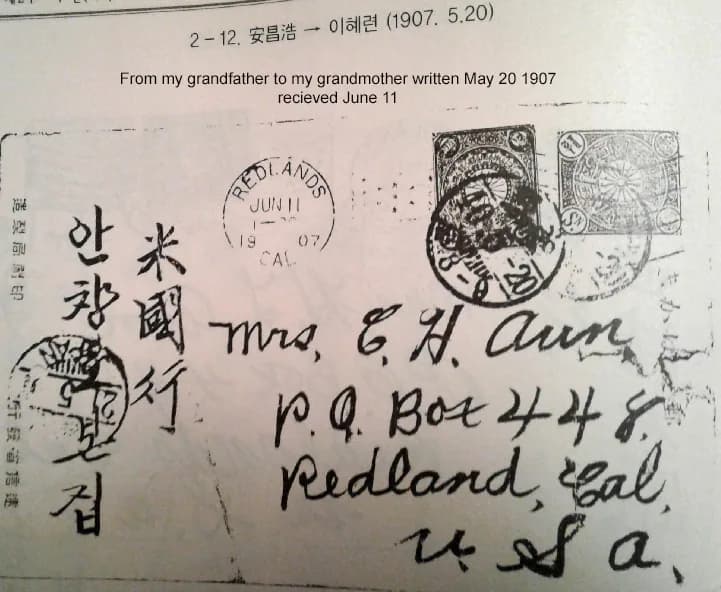 2-12. 安昌浩 → 이혜련 (1907. 5.20)
From my grandfather to my grandmother written May 20 1907
recieved June 11
REDLANDS
JUN 11
1907
CAL
米國行
안창호 본집
Mrs. E. H. Aun
P.O. Box 448.
Redland, Cal.
U. S. A.